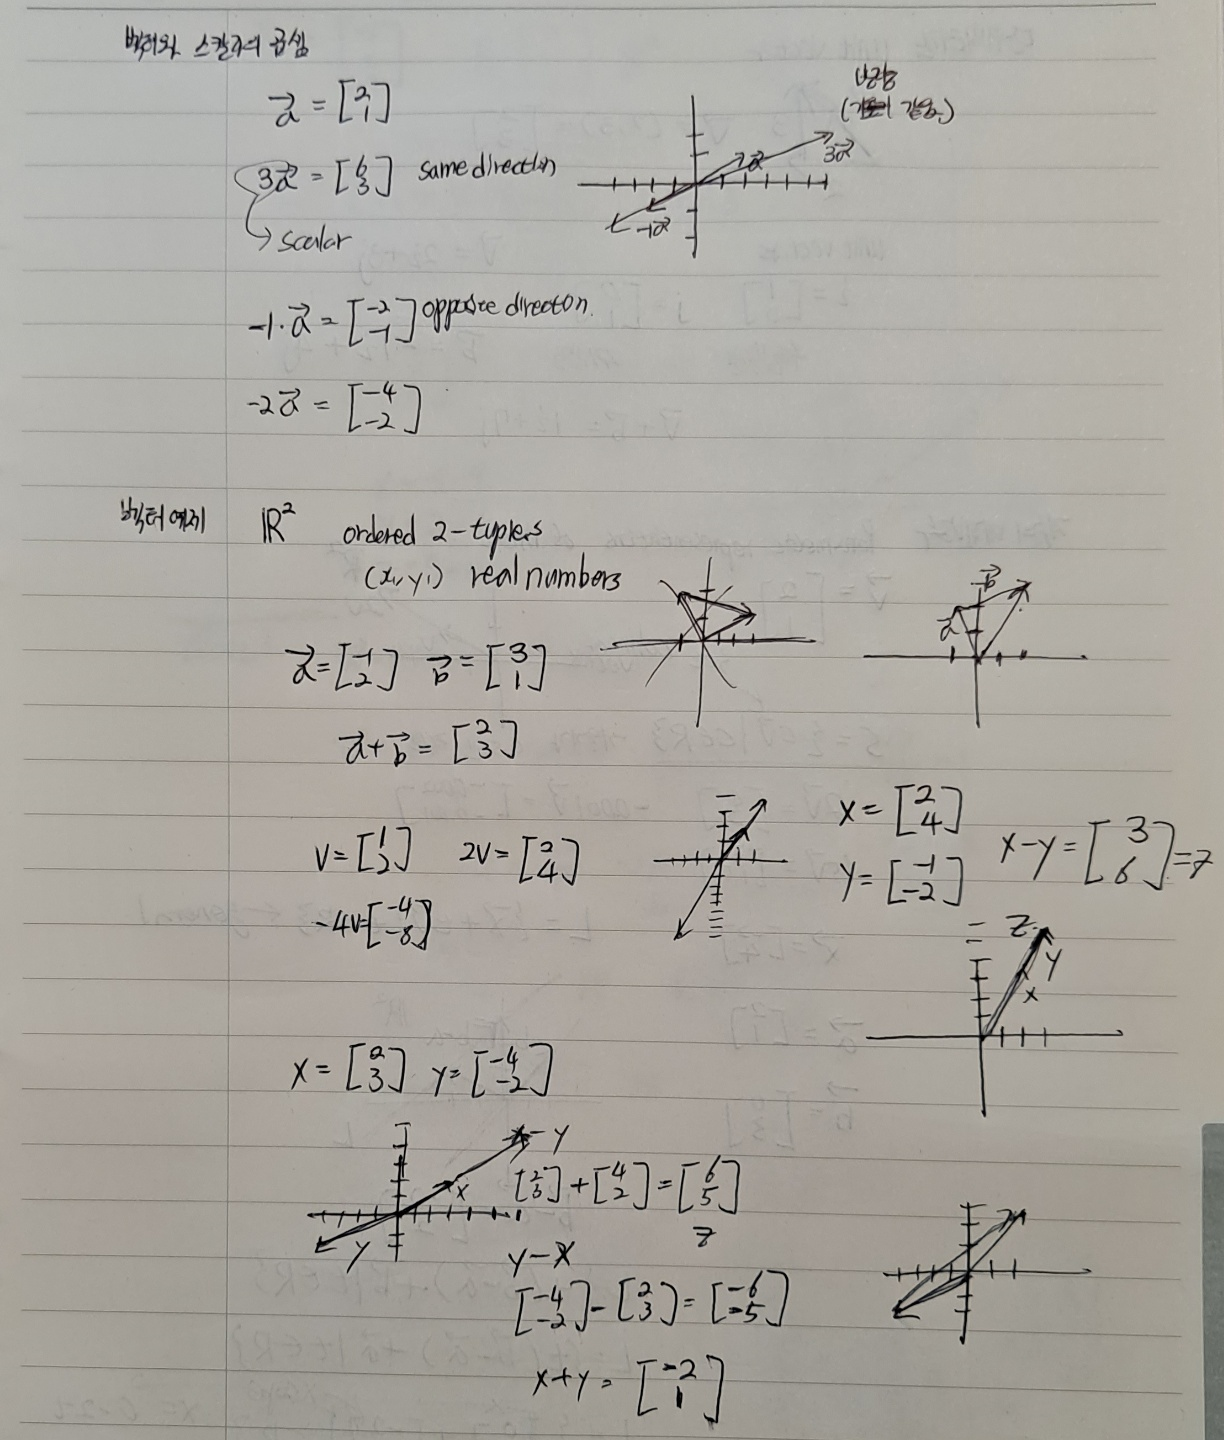 벡터와 스칼라의 곱셈
a⃗ = [2 1]
3a⃗ = [6 3] same direction
→ scalar
방향
같음.)
2a⃗ 3a⃗
-1a⃗
-1·a⃗ = [-2 -1] opposite direction.
-2a⃗ = [-4 -2]
벡터 예제 ℝ² ordered 2-tuplers
(x₁, y₁) real numbers
a⃗ = [-1 2] b⃗ = [3 1]
a⃗ b⃗
a⃗+b⃗ = [2 3]
V = [1 2] 2V = [2 4]
-4V=[-4 -8]
X = [2 4]
Y = [-1 -2]
X-Y = [3 6] = z
z
y
x
X = [2 3] Y = [-4 -2]
x-y
x
y
[2 3] + [4 2] = [6 5]
z
y-x
[-4 -2] - [2 3] = [-6 -5]
x+y = [-2 1]